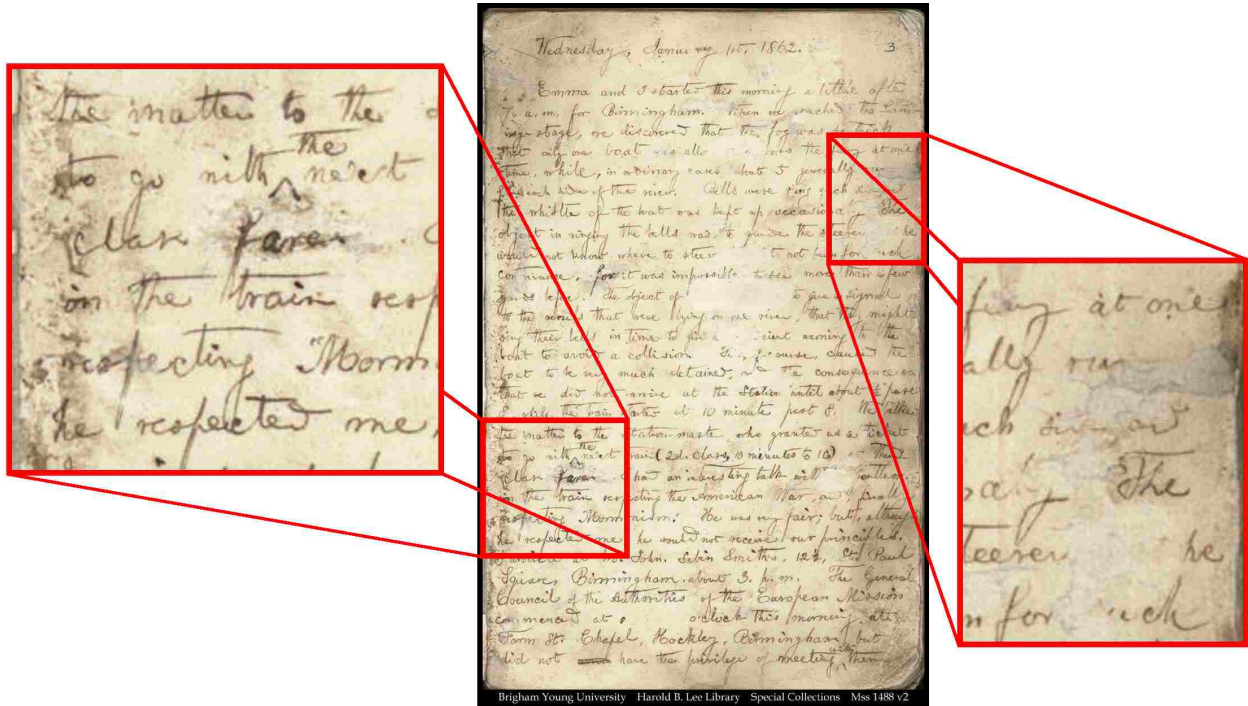 the matter to the
the
to go with ^ next
class fares
in the train resp
respecting "Morm
he respected me,
Wednesday, January 1st, 1862. 3
Emma and I started this morning a little after
7 a.m. for Birmingham. When we reached the Land-
ing-stage, we discovered that the fog was so thick
that only one boat was allo the ferry at one
time, while, in ordinary cases about 5 generally run
each side of the river. Bells were rung each side and
the whistle of the boat was kept up occasiona The
object in ringing the bells was to guide the steerer he
would not know where to steer t not been for uch
contrivance, for it was impossible to see more than a few
yards before. The object of to give a signal
to the vessels that were lying on the river, that they might
ring their bells in time to give a cient warning to the
boat to avoid a collision. course caused the
boat to be very much detained, and the consequence
that we did not arrive at the Station until about ½ past
8, while the train started at 10 minutes past 8. We talked
the matter to the station-master who granted us a ticket
the
to go with ^ next train (2d. class, 10 minutes to 10) at Third
class fares had an interesting talk with
in the train respecting the American War, and finally
respecting "Mormonism." He was very fair; but, although
he respected me, he would not receive our principles.
Arrived at John. Sabin Smith's, 12½, St. Paul
Square, Birmingham, about 3. p.m. The General
Council of the Authorities of the European Mission
commenced at o'clock this morning, at
Farm St. Chapel, Hockley, Birmingham, but
with
did not have the privilege of meeting them
Brigham Young University Harold B. Lee Library Special Collections Mss 1488 v2
ferry at one
ally run
ach side and
The
teerer he
n for uch